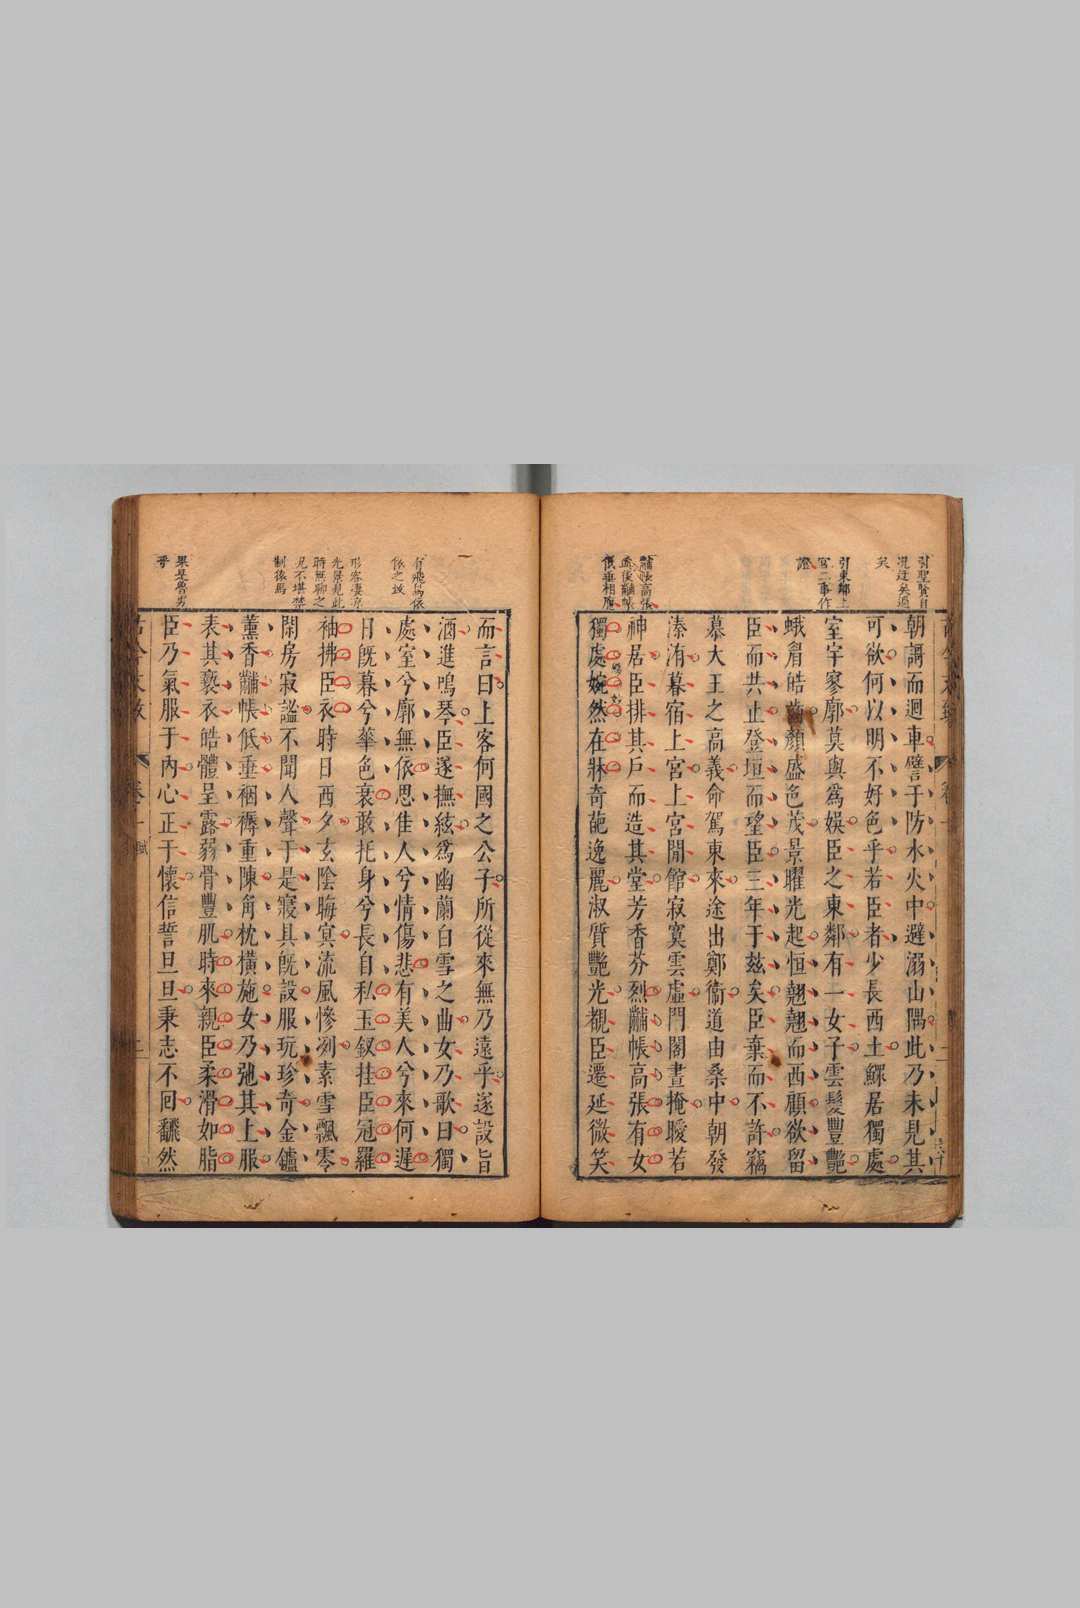 引聖賢自
況迂矣過
矣
引東鄰上
宮二事作
證
黼帳高張
朝謌而迴車譬于防水火中避溺山隅此乃未見其
可欲何以明不好色乎若臣者少長西土鰥居獨處
室宇寥廓莫與爲娛臣之東鄰有一女子雲髮豐艷
蛾眉皓齒顏盛色茂景曜光起恒翹翹而西顧欲留
臣而共止登垣而望臣三年于茲矣臣棄而不許竊
慕大王之高義命駕東來途出鄭衞道由桑中朝發
溱洧暮宿上宮上宮閒館寂寞雲虛門閣晝掩曖若
神居臣排其戶而造其堂芳香芬烈黼帳高張有女
獨處婉然在牀奇葩逸麗淑質艷光覩臣遷延微笑
有飛鳥依
依之致
形容凄凉
光景見此
時無聊之
見不堪禁
制猿馬
果是魯男
乎
而言曰上客何國之公子所從來無乃遠乎遂設旨
酒進鳴琴臣遂撫絃爲幽蘭白雪之曲女乃歌曰獨
處室兮廓無依思佳人兮情傷悲有美人兮來何遲
日旣暮兮華色衰敢托身兮長自私玉釵挂臣冠羅
袖拂臣衣時日西夕玄陰晦冥流風慘冽素雪飄零
閑房寂謐不聞人聲于是寢具旣設服玩珍奇金鑪
薰香黼帳低垂裀褥重陳角枕橫施女乃弛其上服
表其褻衣皓體呈露弱骨豐肌時來親臣柔滑如脂
臣乃氣服于內心正于懷信誓旦旦秉志不回飜然
卷一
賦
二